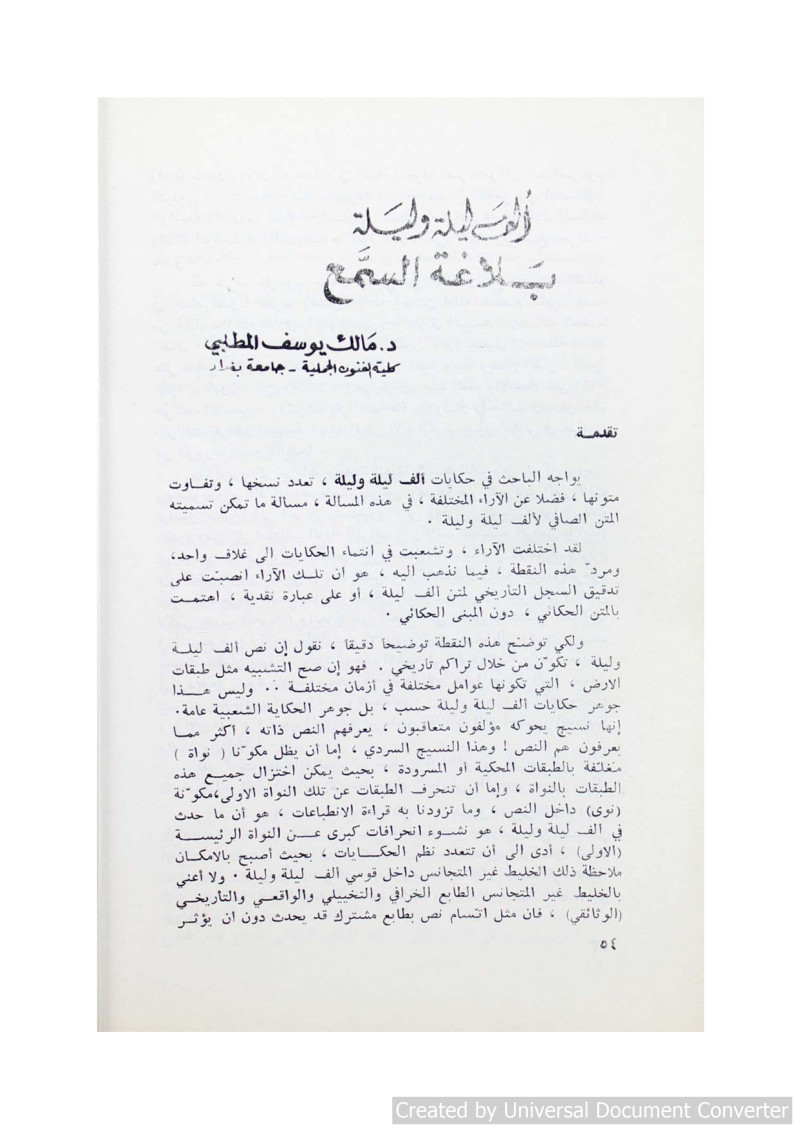 ألف ليلة وليلة
بلاغة السمع
د. مالك يوسف المطلبي
كلية الفنون الجميلة - جامعة بغداد
تقدمة
يواجه الباحث في حكايات ألف ليلة وليلة ، تعدد نسخها ، وتفاوت
متونها ، فضلا عن الآراء المختلفة ، في هذه المسألة ، مسألة ما تمكن تسميته
المتن الصافي لألف ليلة وليلة .
لقد اختلفت الآراء ، وتشعبت في انتماء الحكايات الى غلاف واحد،
ومردّ هذه النقطة ، فيما نذهب اليه ، هو ان تلك الآراء انصبت على
تدقيق السجل التأريخي لمتن الف ليلة ، أو على عبارة نقدية ، اهتمت
بالمتن الحكائي ، دون المبنى الحكائي .
ولكي توضح هذه النقطة توضيحاً دقيقاً ، نقول إن نص ألف ليلة
وليلة ، تكوّن من خلال تراكم تأريخي . فهو إن صح التشبيه مثل طبقات
الارض ، التي تكونها عوامل مختلفة في أزمان مختلفة .. وليس هذا
جوهر حكايات ألف ليلة وليلة حسب ، بل جوهر الحكاية الشعبية عامة.
إنها نسيج يحوكه مؤلفون متعاقبون ، يعرفهم النص ذاته ، اكثر مما
يعرفون هم النص ! وهذا النسيج السردي ، إما أن يظل مكوّنا ( نواة )
مغلفة بالطبقات المحكية أو المسرودة ، بحيث يمكن اختزال جميع هذه
الطبقات بالنواة ، وإما أن تنحرف الطبقات عن تلك النواة الاولى،مكوّنة
(نوى) داخل النص ، وما تزودنا به قراءة الانطباعات ، هو أن ما حدث
في الف ليلة وليلة ، هو نشوء انحرافات كبرى عن النواة الرئيسة
(الاولى) ، أدى الى أن تتعدد نظم الحكايات ، بحيث أصبح بالامكان
ملاحظة ذلك الخليط غير المتجانس داخل قوسي ألف ليلة وليلة . ولا أعني
بالخليط غير المتجانس الطابع الخرافي والتخييلي والواقعي والتأريخي
(الوثائقي) ، فان مثل اتسام نص بطابع مشترك قد يحدث دون ان يؤثر
٥٤
Created by Universal Document Converter